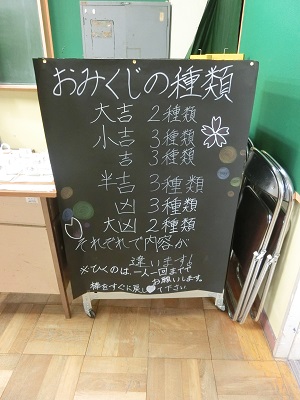 おみくじの種類
大吉 2種類
小吉 3種類
吉 3種類
半吉 3種類
凶 3種類
大凶 2種類
それぞれで内容が
違います!
※ひくのは、一人一回までで
お願いします。
棒をすぐに戻して下さい